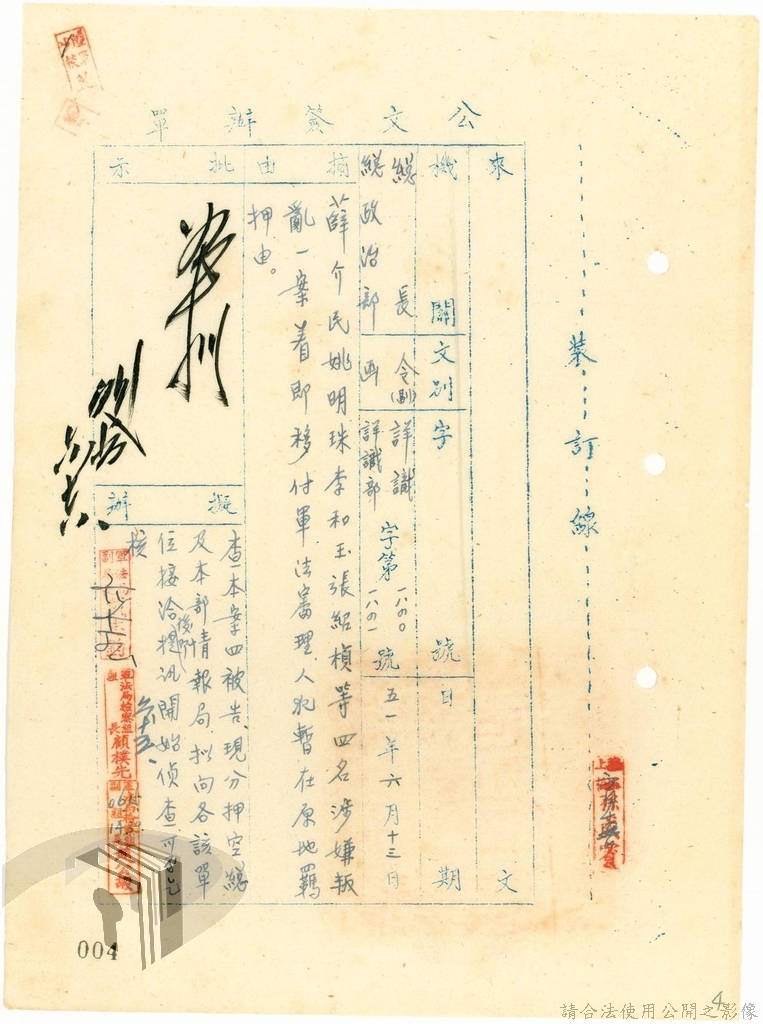 公文簽辦單
裝訂線
來文
機關
文別
字號
日期
總長
令(副)
詳識
總政治部
函
詳識部
字第一八四〇
一八四一號
五一年六月十三日
摘由
薛介民姚明珠李和玉張紹楨等四名涉嫌叛
亂一案着即移付軍法審理人犯暫在原地羈
押由。
批示
擬辦
查本案四被告現分押空總
及本部情報局擬向各該單
位接洽後即提訊開始偵查可否乞
核
軍法局檢察組
組長顧樸先
004
4
請合法使用公開之影像